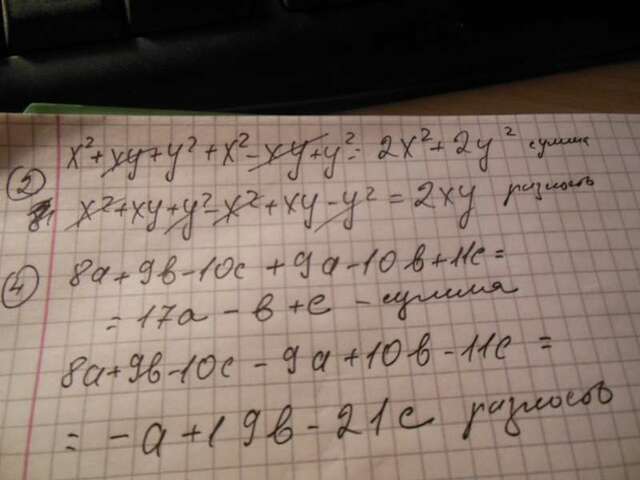 ② x²+xy+y²+x²-xy+y²= 2x²+2y² сумма
x²+xy+y²-x²+xy-y² = 2xy разность
④ 8a+9b-10c+9a-10b+11c=
= 17a - b + c - сумма
8a+9b-10c-9a+10b-11c =
= -a+19b-21c разность